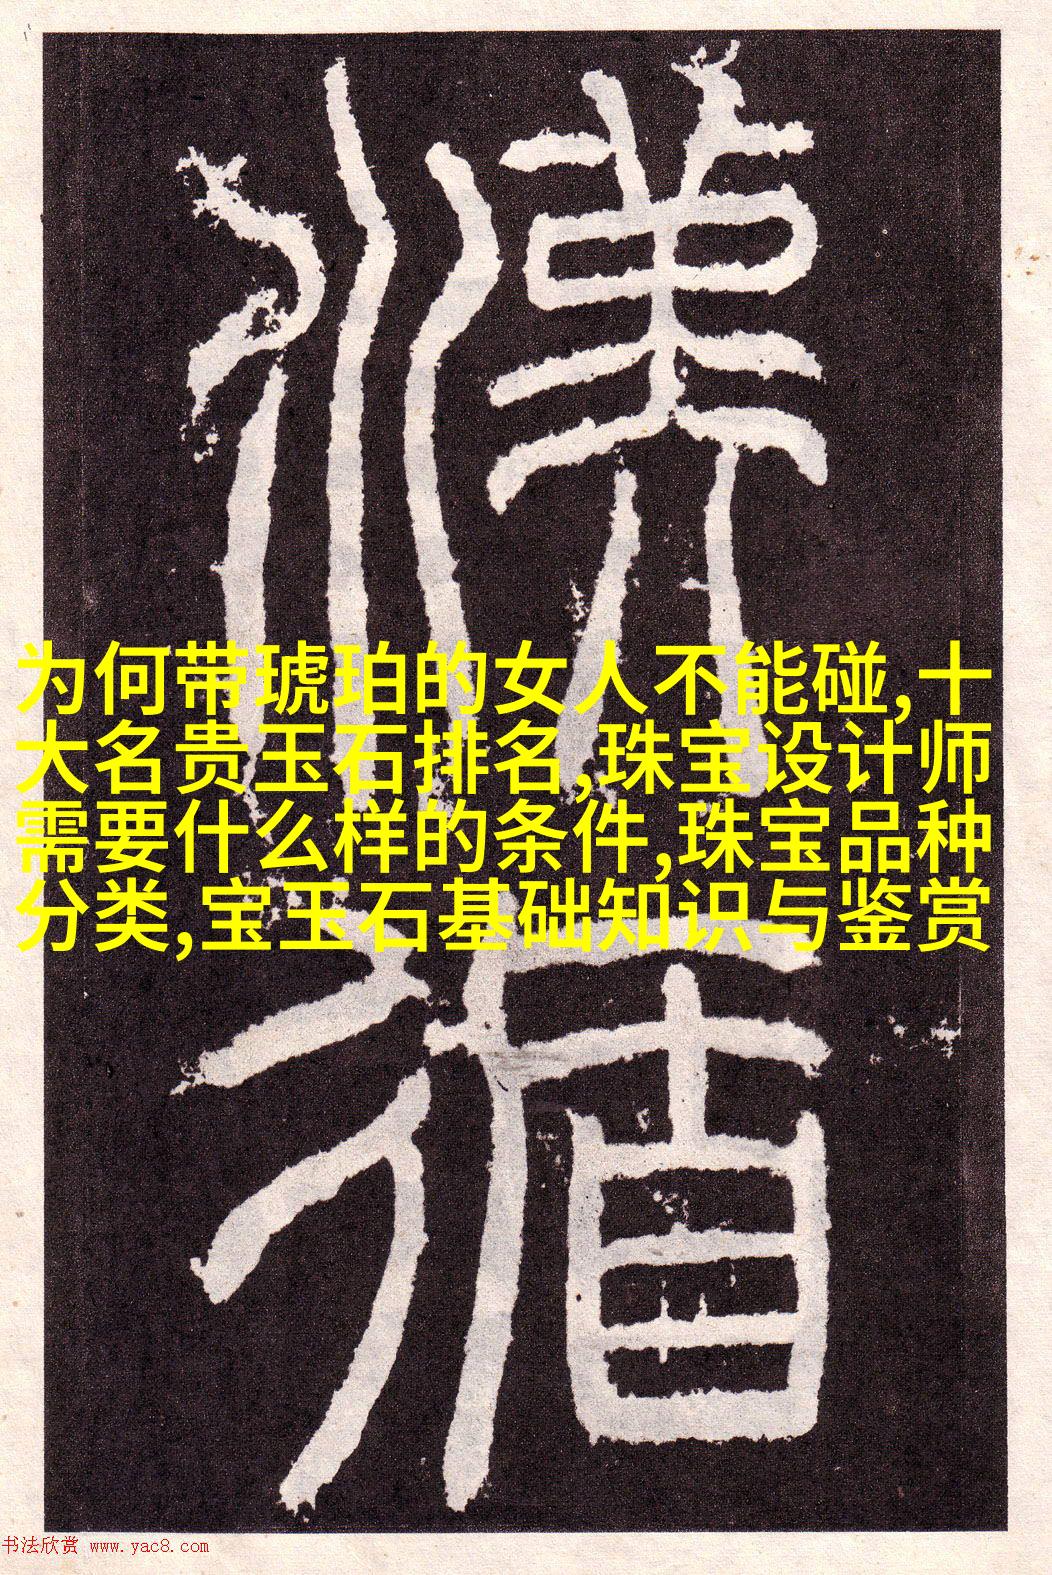 为何带琥珀的女人不能碰,十
大名贵玉石排名,珠宝设计师
需要什么样的条件,珠宝品种
分类,宝玉石基础知识与鉴赏
书法欣赏 www.yac8.com